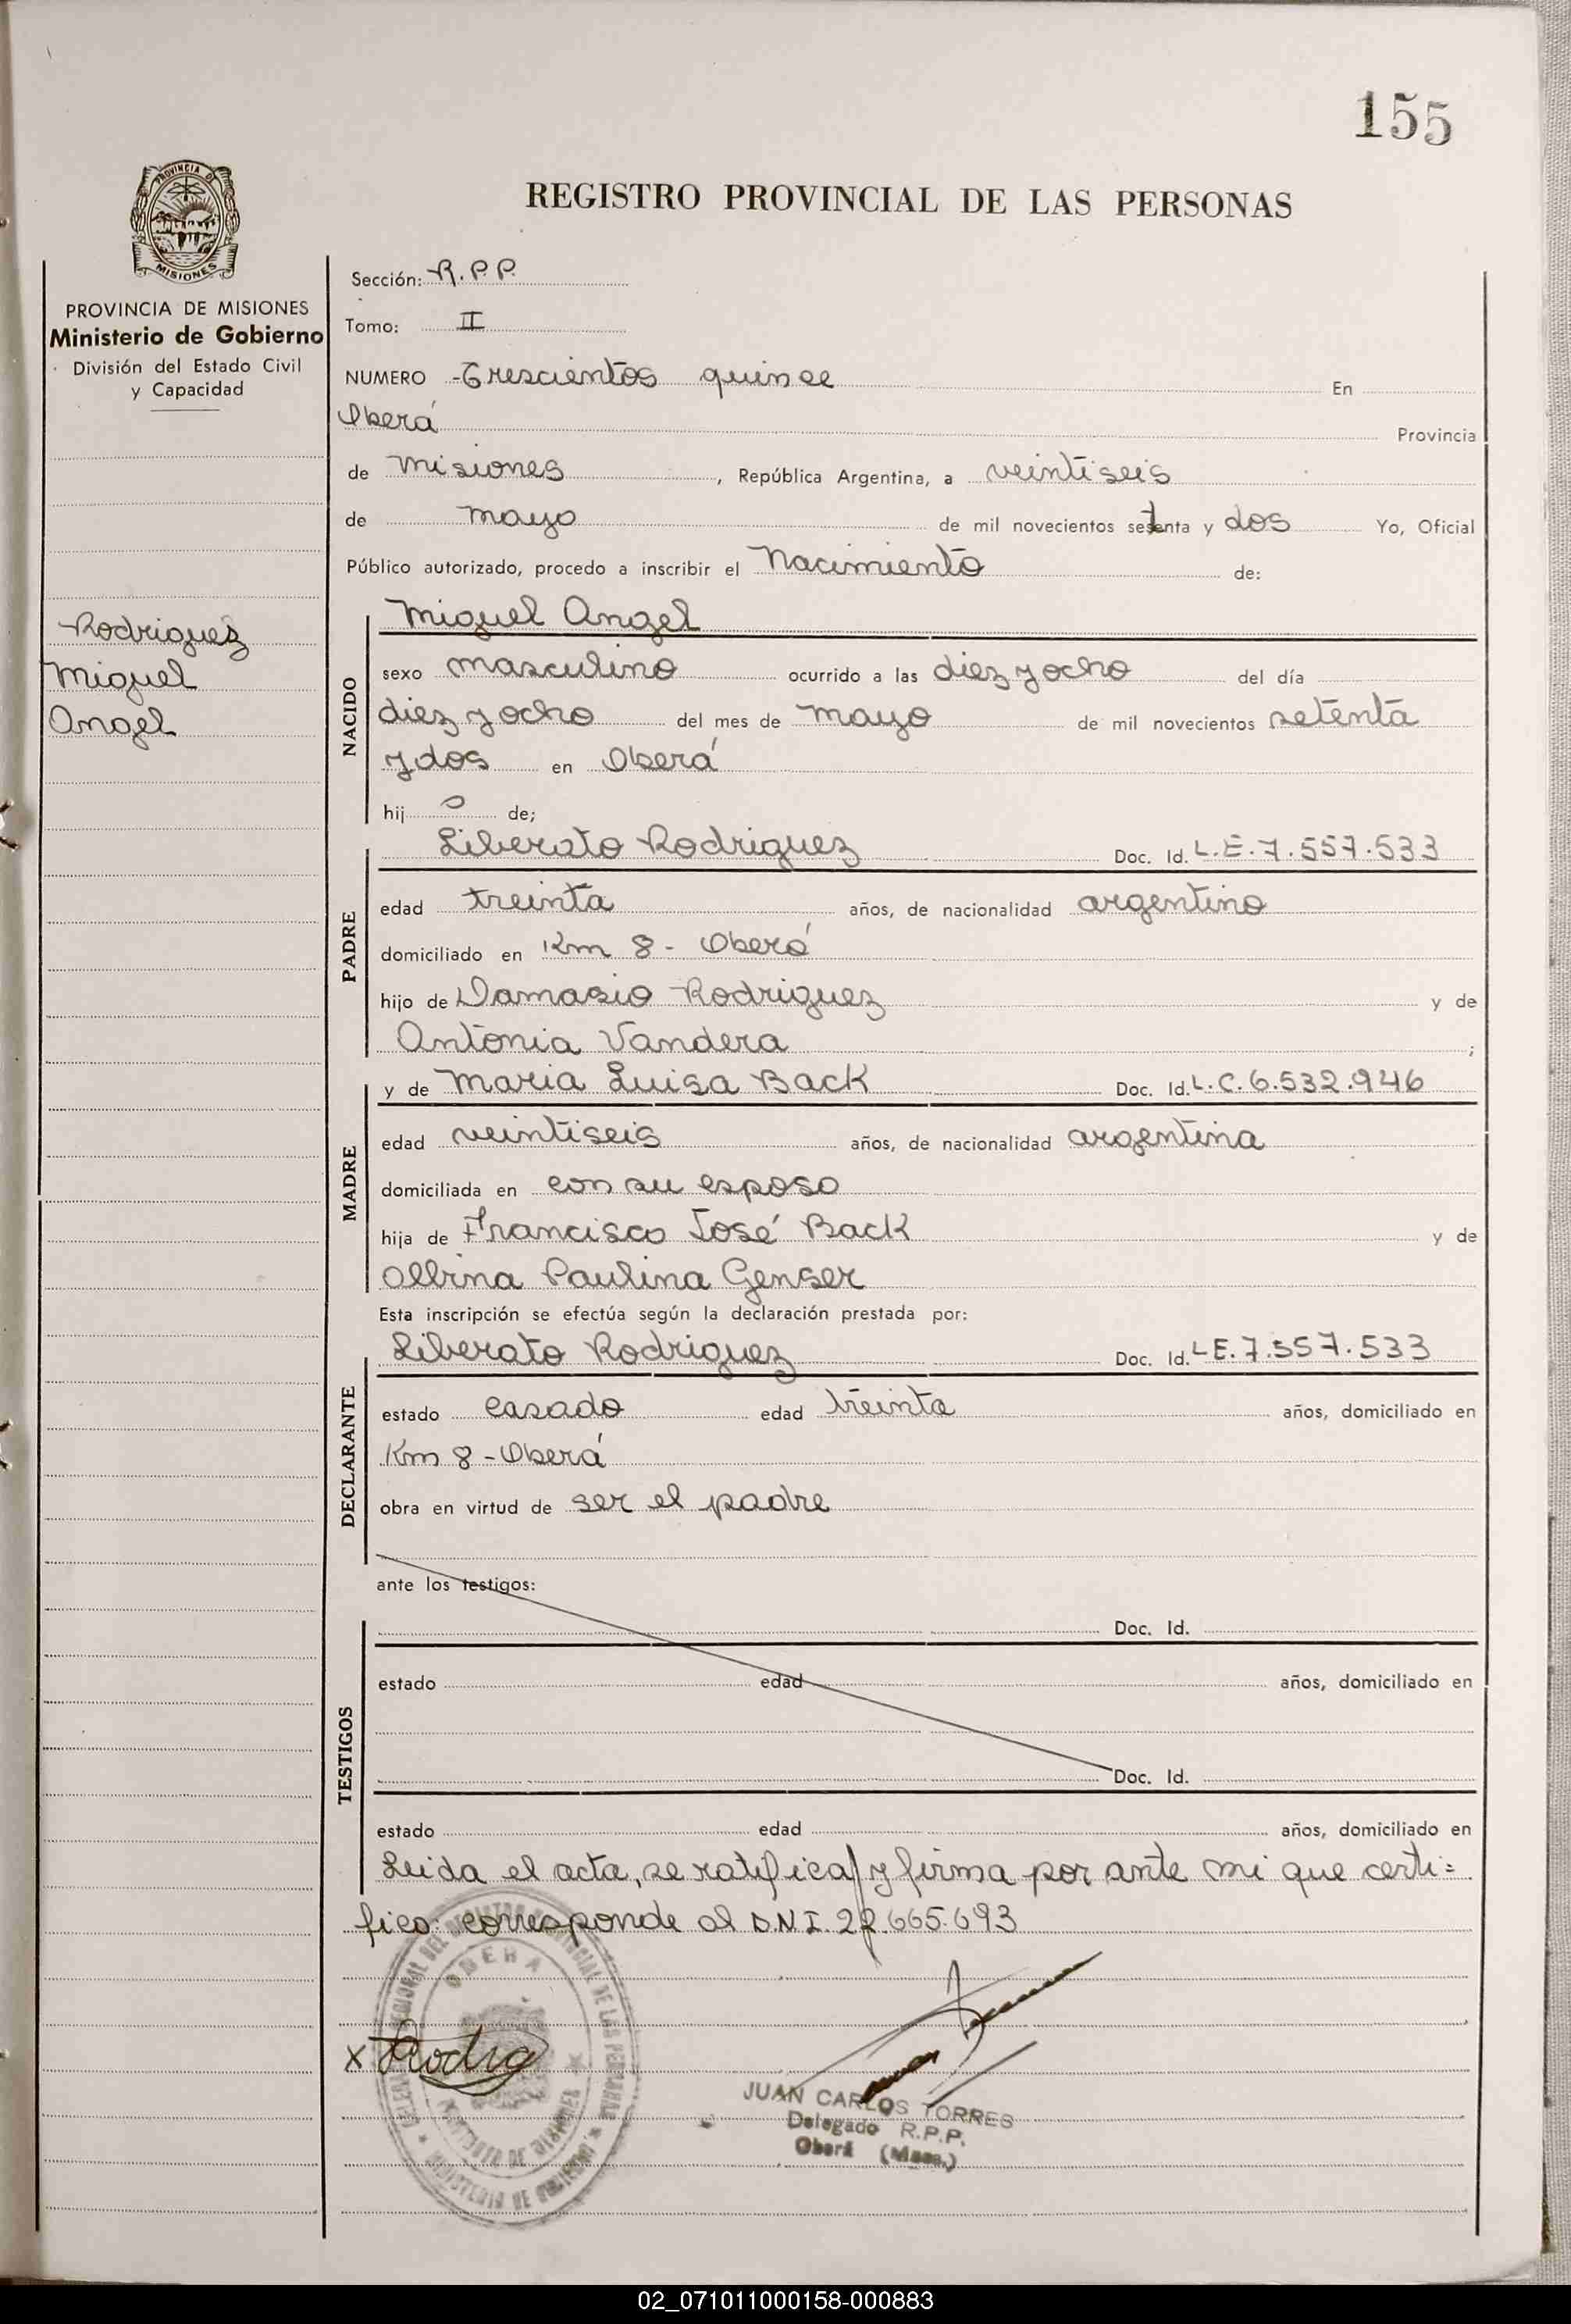 155
REGISTRO PROVINCIAL DE LAS PERSONAS
PROVINCIA DE MISIONES
Ministerio de Gobierno
División del Estado Civil
y Capacidad
Rodriguez
Miguel
Angel
Sección: R.P.P.
Tomo: II
NUMERO Trescientos quince En
Oberá Provincia
de Misiones, República Argentina, a veintiseis
de mayo de mil novecientos setenta y dos Yo, Oficial
Público autorizado, procedo a inscribir el Nacimiento de:
NACIDO
Miguel Angel
sexo masculino ocurrido a las diez y ocho del día
diez y ocho del mes de mayo de mil novecientos setenta
y dos en Oberá
hijo de;
PADRE
Liberato Rodriguez Doc. Id. L.E. 7.557.533
edad treinta años, de nacionalidad argentino
domiciliado en Km 8 - Oberá
hijo de Damasio Rodriguez y de
Antonia Vandera ;
MADRE
y de Maria Luisa Back Doc. Id. L.C. 6.532.946
edad veintiseis años, de nacionalidad argentina
domiciliada en con su esposo
hija de Francisco José Back y de
Albina Paulina Genser
Esta inscripción se efectúa según la declaración prestada por:
DECLARANTE
Liberato Rodriguez Doc. Id. L.E. 7.557.533
estado casado edad treinta años, domiciliado en
Km 8 - Oberá
obra en virtud de ser el padre
ante los testigos:
TESTIGOS
Doc. Id.
estado edad años, domiciliado en
Doc. Id.
estado edad años, domiciliado en
Leida el acta, se ratifica y firma por ante mi que certi=
fico: corresponde al D.N.I. 22.665.693
OBERA
MINISTERIO DE GOBIERNO
x Rodrig
JUAN CARLOS TORRES
Delegado R.P.P.
Oberá (Mnes.)
02_071011000158-000883